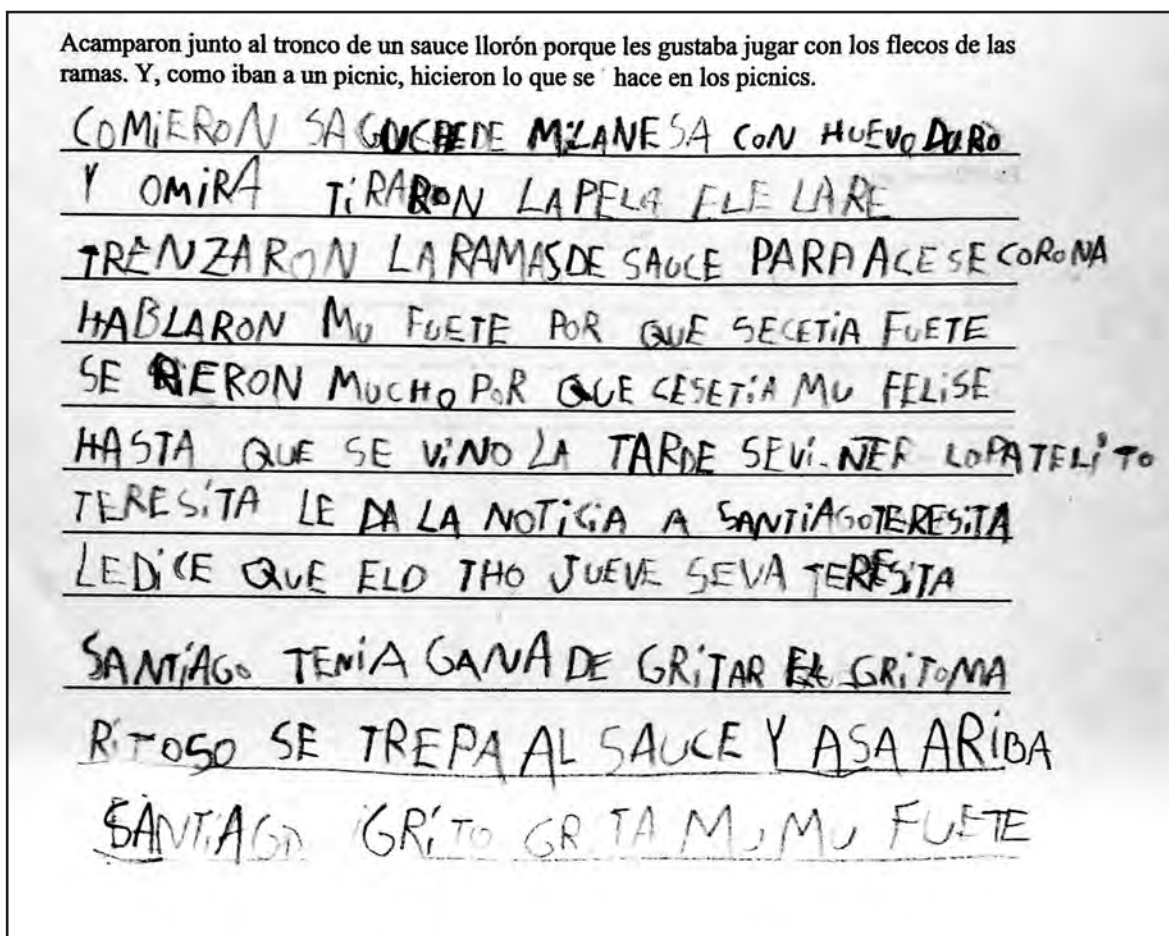 Acamparon junto al tronco de un sauce llorón porque les gustaba jugar con los flecos de las
ramas. Y, como iban a un picnic, hicieron lo que se hace en los picnics.
COMiERON SAGUCHEDE MILANESA CON HUEVO DURO
Y OMiRA TiRARON LA PELA ELE LARE
TRENZARON LA RAMASDE SAUCE PARA ACESE CORONA
HABLARON MU FUETE POR QUE SECETiA FUETE
SE RIERON MUCHO POR QUE CESETiA MU FELiSE
HASTA QUE SE ViNO LA TARDE SEVi-NER LOPATELiTO
TERESiTA LE DA LA NOTiCiA A SANTiAGOTERESiTA
LEDiCE QUE ELO THO JUEVE SEVA TERESiTA
SANTiAGO TENiA GANA DE GRiTAR EL GRiTOMA
RiTOSO SE TREPA AL SAUCE Y ASA ARiBA
SANTiAGO GRiTO GRiTA MU MU FUETE